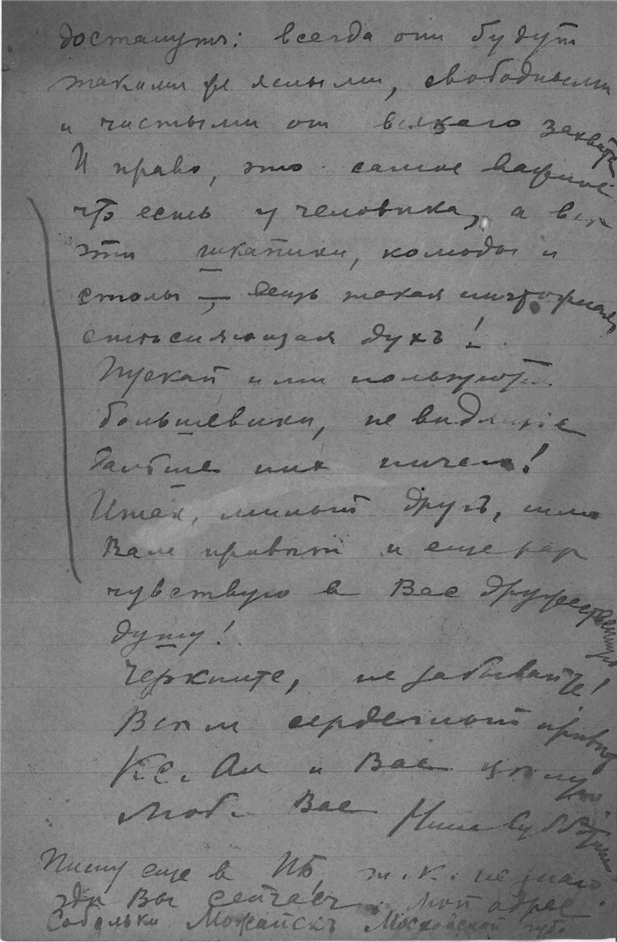 достанутъ: всегда они будут
такими же ясными, свободными
и чистыми от всякаго захвата
И право, это самое важное
что есть у человѣка, а все
эти шкапики, комоды и
столы — вещь такая ничтожная,
духъ!
Пускай ими пользуются
большевики, не видящіе
дальше них ничего!
Итак, милый другъ, шлю
Вам привѣт и еще раз
чувствую в Вас дружественную
душу!
Черкните, не забывайте!
Всѣм сердечный привѣт
Кс. Ал и Вас цѣлую
Люб. Вас Нина
Пишу еще в Пб, т.к. не знаю
гдѣ Вы сейчасъ. Мой адрес
Собольки Можайскъ Московской губ.